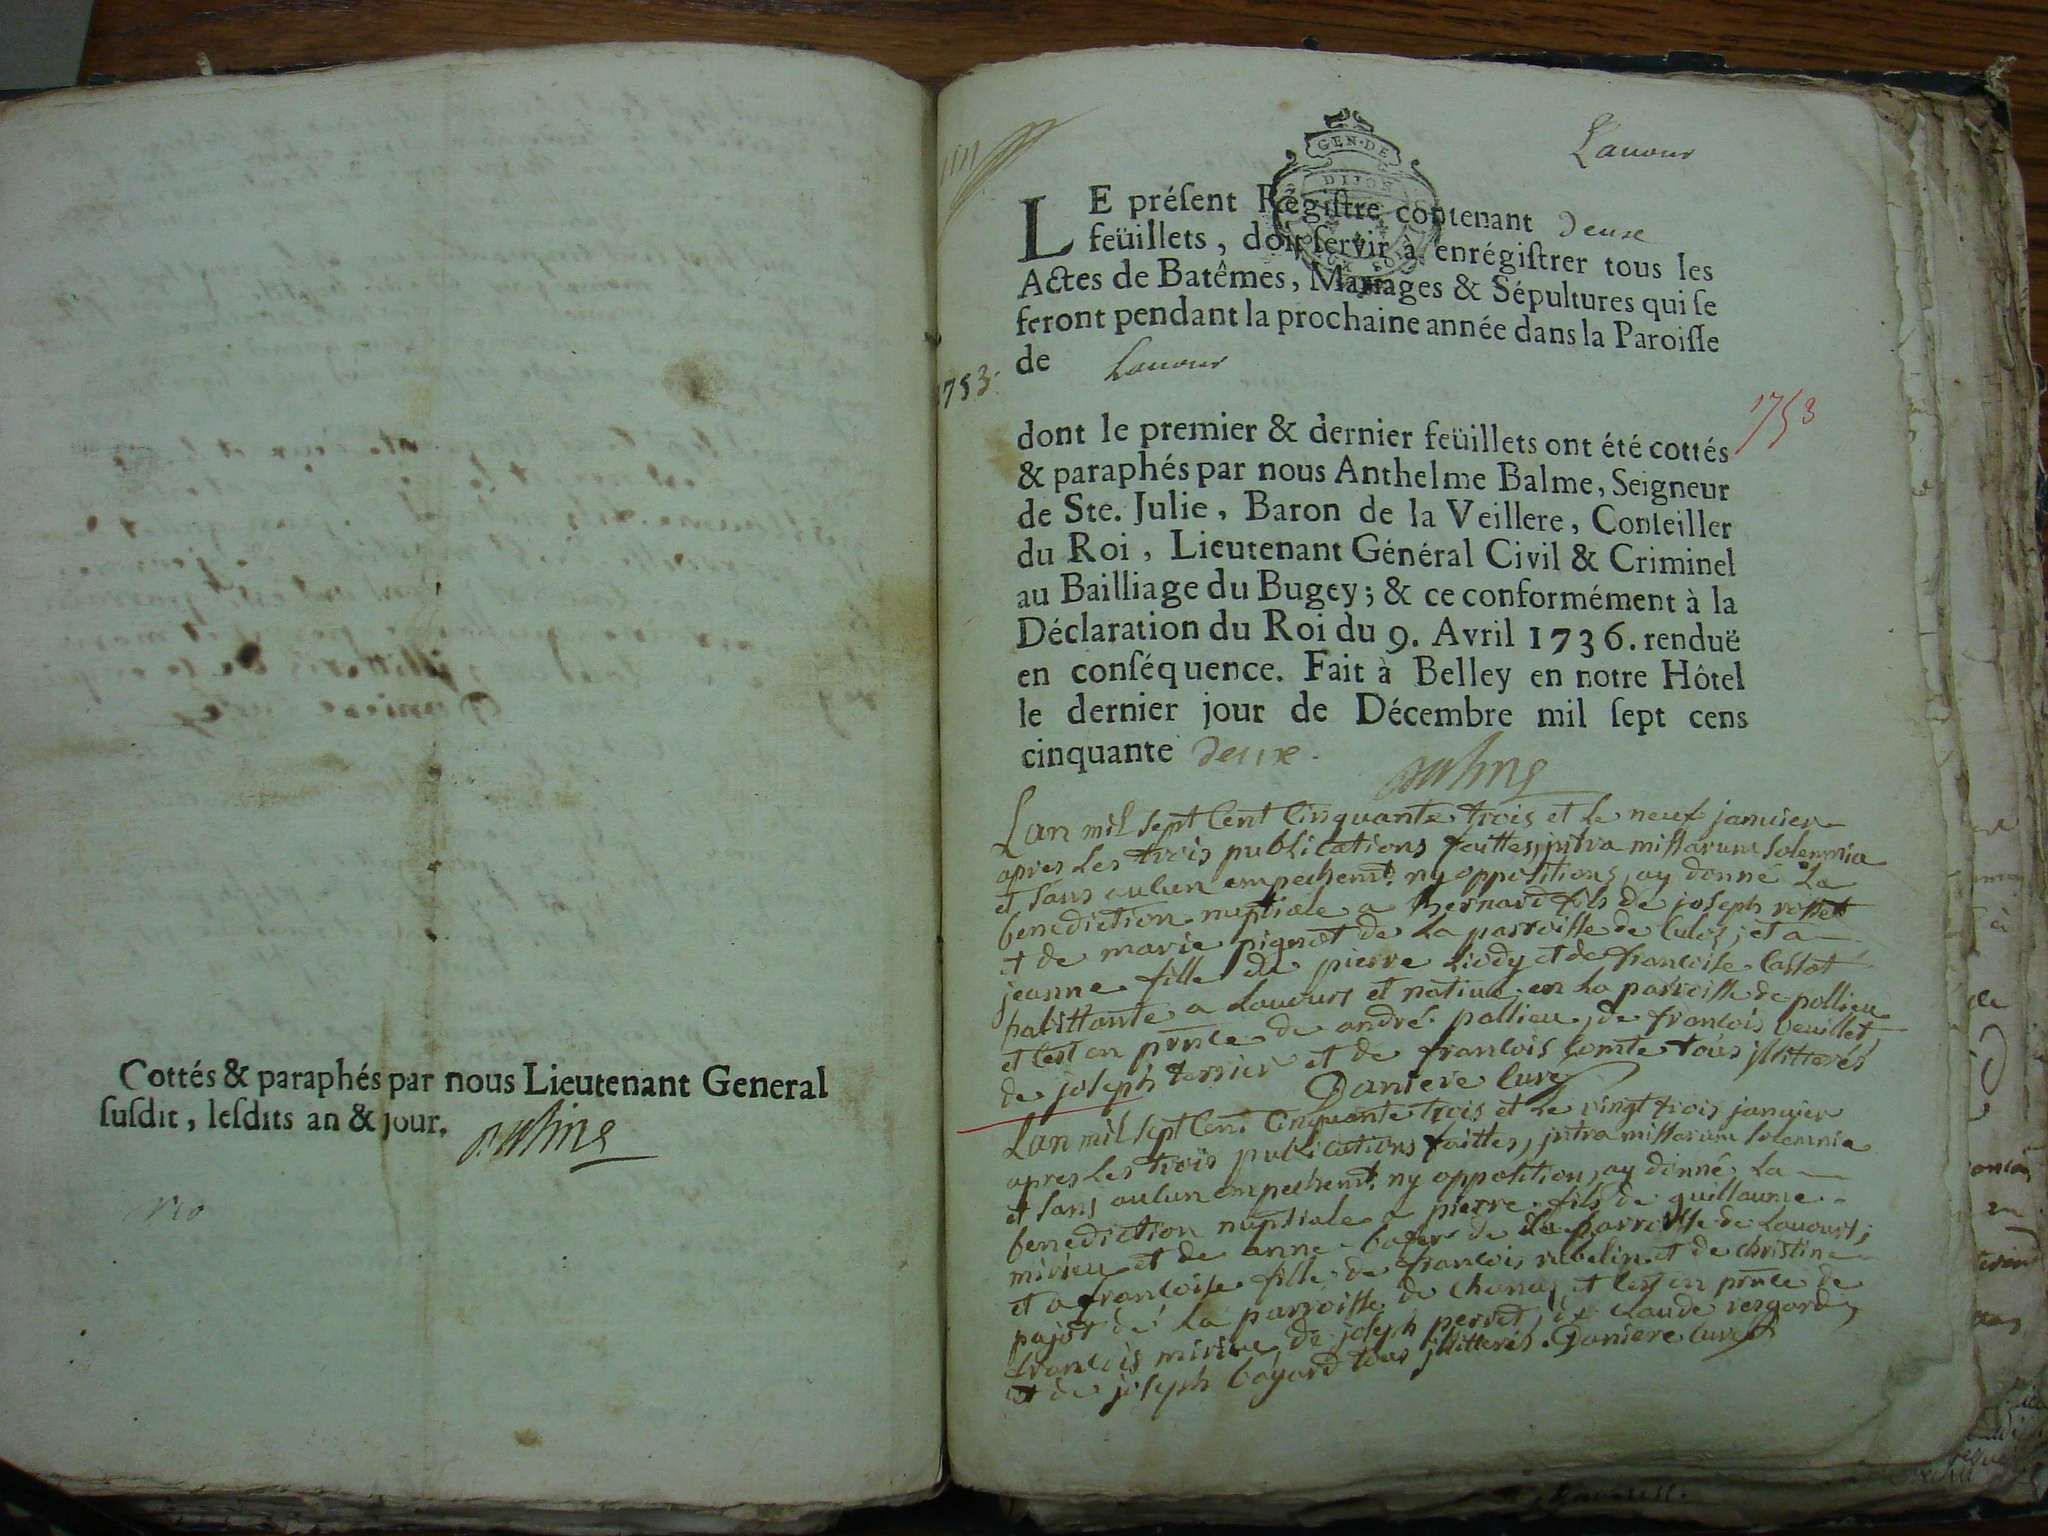 Cottés & paraphés par nous Lieutenant General
suſdit, leſdits an & jour.
Lauour
GEN·DE
DIJON
LE préſent Régiſtre contenant deuxe
feüillets, doit ſervir à enrégiſtrer tous les
Actes de Batêmes, Mariages & Sépultures qui ſe
feront pendant la prochaine année dans la Paroiſſe
de Lauour
1753.
1753
dont le premier & dernier feüillets ont été cottés
& paraphés par nous Anthelme Balme, Seigneur
de Ste. Julie, Baron de la Veillere, Conſeiller
du Roi, Lieutenant Général Civil & Criminel
au Bailliage du Bugey; & ce conformément à la
Déclaration du Roi du 9. Avril 1736. renduë
en conſéquence. Fait à Belley en notre Hôtel
le dernier jour de Décembre mil ſept cens
cinquante deux.
Lan mil sept Cent Cinquante trois et le neuf januier
apres les trois publications faittes, jntra missarum solemnia
et sans auCun empechemt. ny oppositions, ay donné La
benediction nuptiale a Bernard fils de joseph rosset
et de marie pignot de La parroisse de Culoz, et a
jeanne fille de pierre Liody et de francoise Cassot
habittante a Lauours et natiue en La parroisse de pollieu
et C'est en prnce de andré pollieu, de francois veuillet,
de joseph terrier et de francois Comte tous jllitterés
Daniere Curé
Lan mil sept Cent Cinquante trois et Le vingt trois januier
apres Les trois publications faittes, jntra missarum solemnia
et sans auCun empechemt. ny opposition, ay donné La
benediction nuptiale a pierre fils de guillaume
mirieu et de anne de La parroisse de Lauours;
et a francoise fille de francois rubelin et de christine
pajot de La parroisse de Chanaz, et C'est en prnce de
francois mirieu, de joseph perret, de Claude resgard,
et de joseph bayard tous jllitterés. Daniere Curé